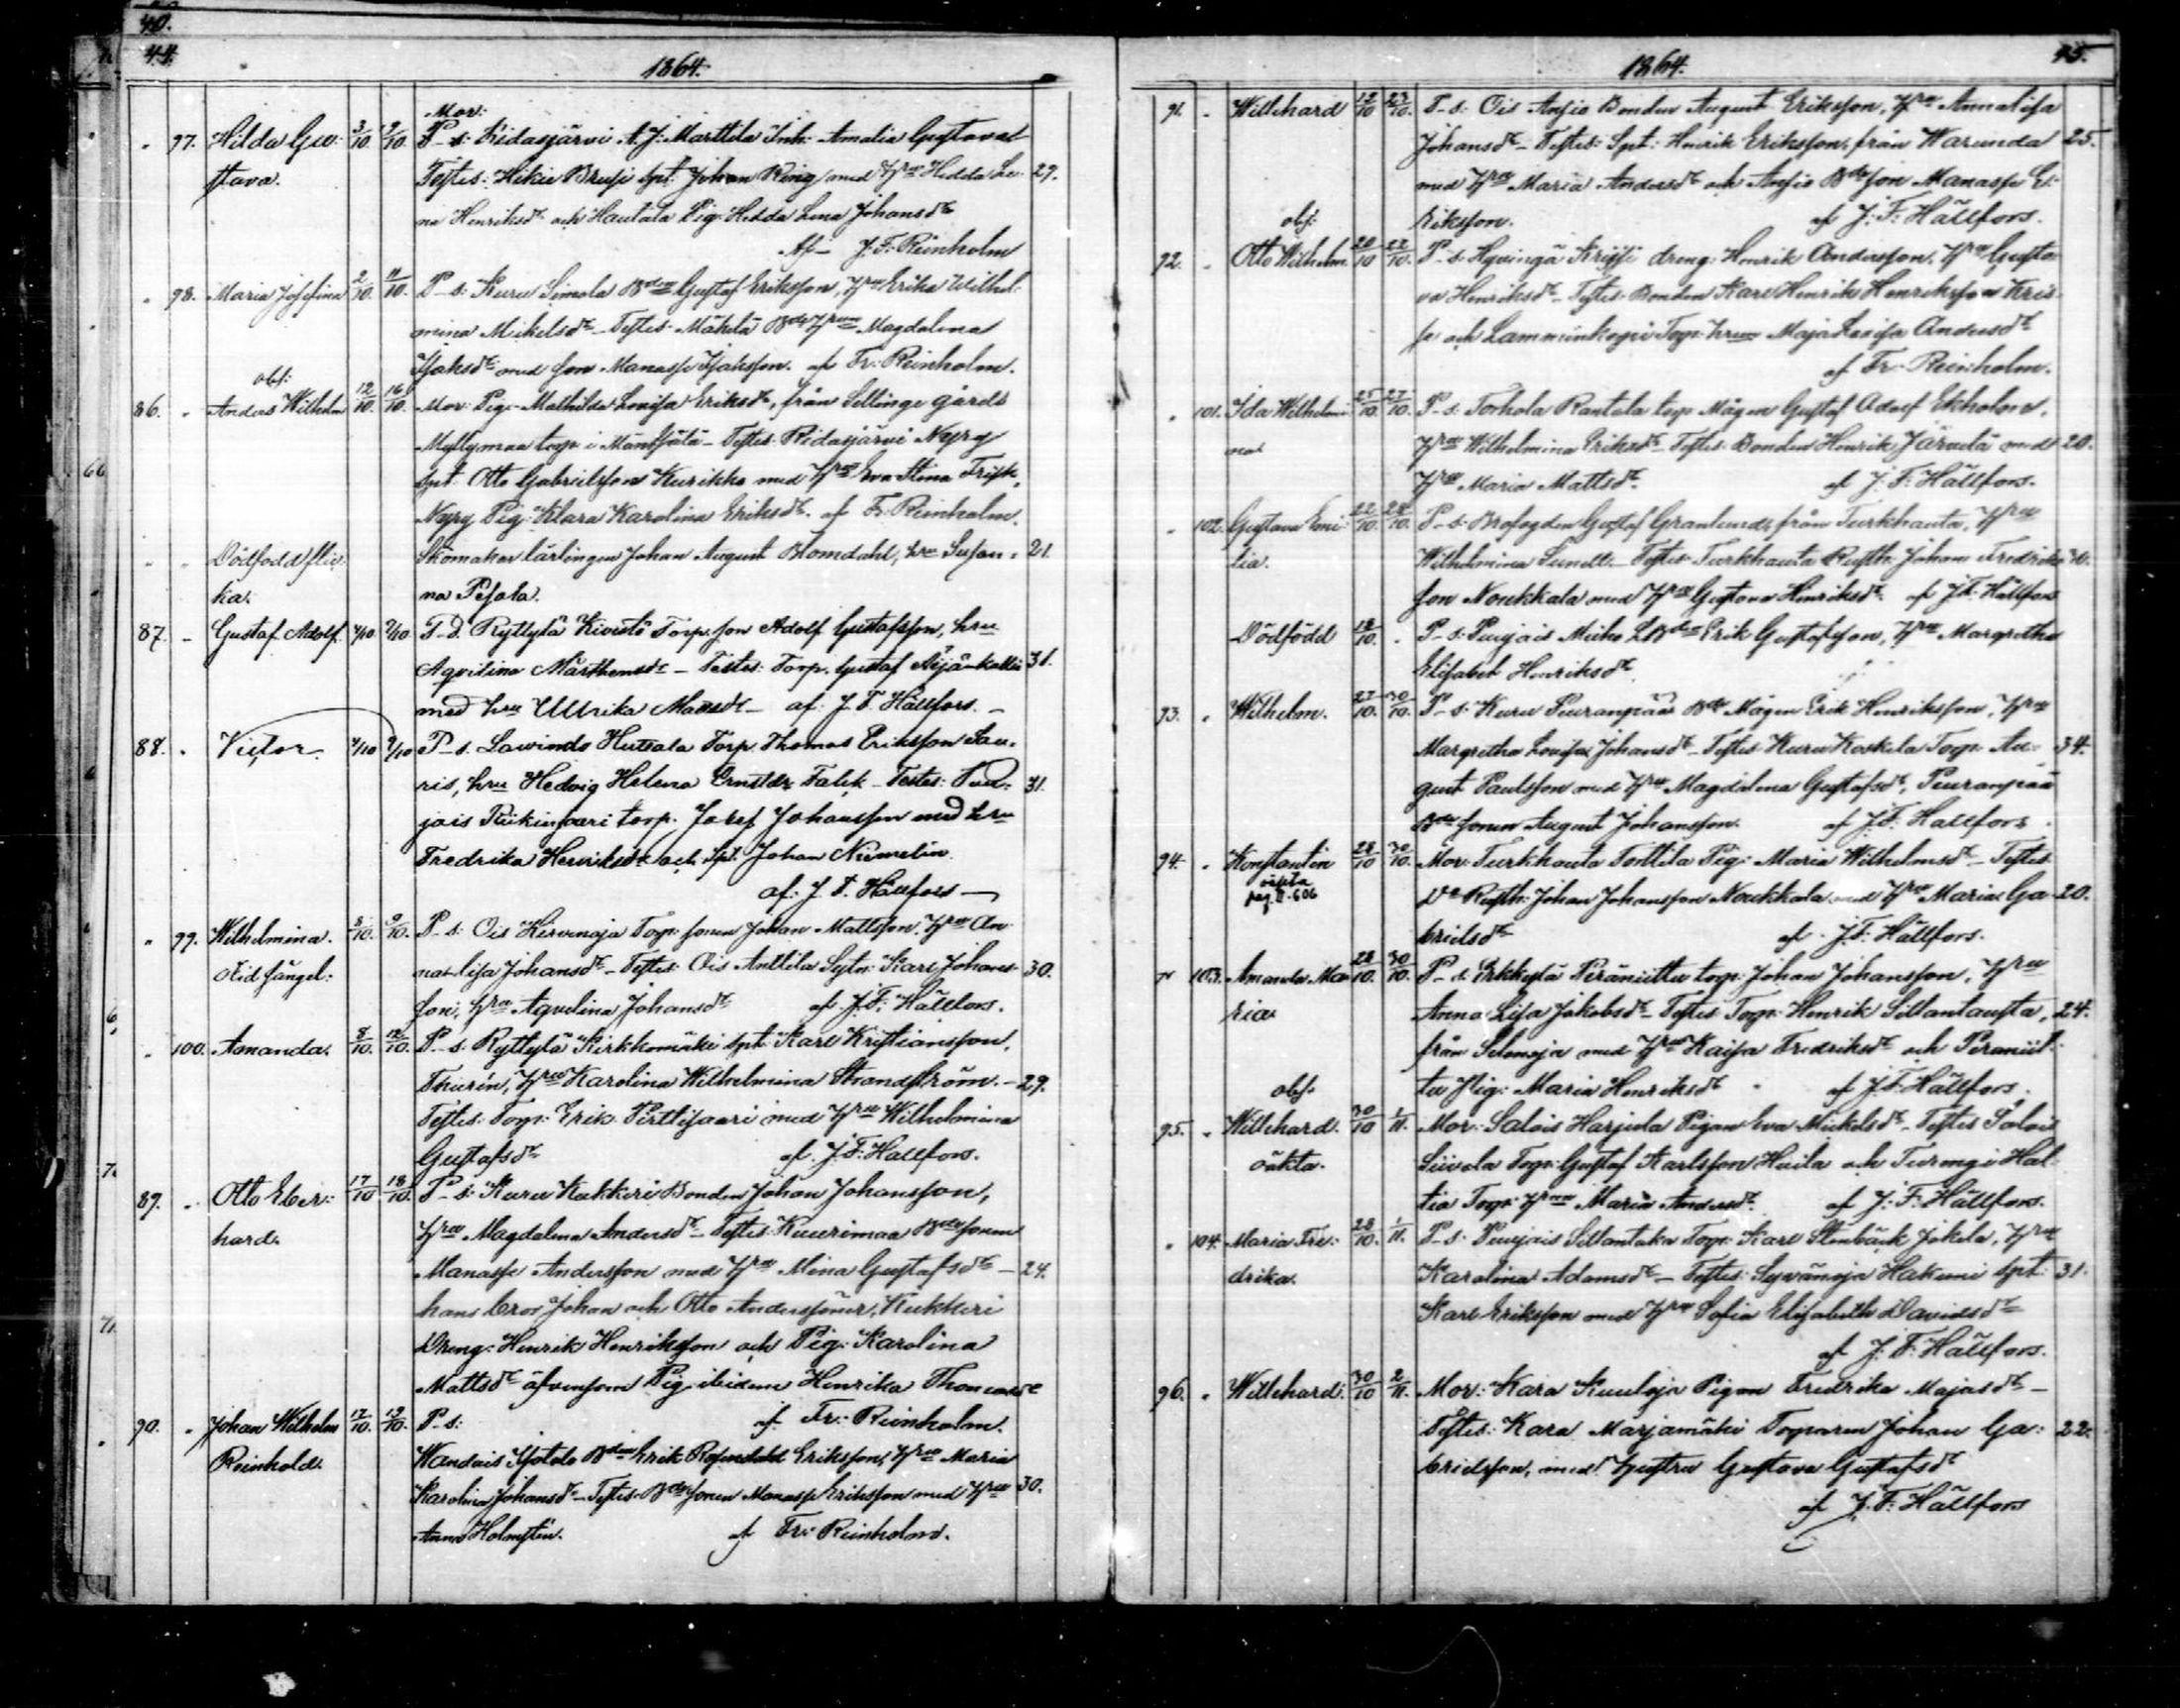 40.
44.
1864.
Mor:
" 97. Hilda Gu: 3/10. 9/10. P-s: Ridasjärvi A. J. Marttila Inh: Amalia Gustava
stava. Testes: Hikiä Brusi Spt: Johan Ring med Hru Hedda Le- 29.
na Henriksdr och Hautala Pig: Hedda Lena Johansdr
Af J. F. Reinholm
" 98. Maria Josefina 2/10. 11/10. P-s: Kuru Simola Bden Gustaf Eriksson, Hru Erika Wilhel-
mina Mikelsdr - Testes: Mäkelä Bde Hrun Magdalena
Isaksdr med son Manasse Isaksson. af Fr: Reinholm.
obs:
86. " Anders Wilhelm 12/10. 16/10. Mor: Pig: Mathilda Lovisa Eriksdr, från Sellinge gårds
Myllymaa torp i Mäntsälä - Testes: Ridasjärvi Nyry
Spt Otto Gabrielsson Kurikka med Hru Eva Stina Frisk,
Nyry Pig: Klara Karolina Eriksdr. af Fr: Reinholm.
" " Dödfödd flic- Skomakar lärlingen Johan August Blomdahl, hru Susan- 21.
ka. na Pesola.
87. - Gustaf Adolf 4/10 9/10 P-s. Ryttylä Kivistö Torp. son Adolf Gustafsson, hru
Aqvilina Mårtensdr - Testes: Torp. Gustaf Äijänkallio 31.
med hru Ulrika Matsdr - af: J. F. Hällfors. -
88. " Victor 4/10 9/10 P-s. Lavindo Hutsala Torp. Thomas Eriksson Lau-
ris, hru Hedvig Helena Ernstdr Falck - Testes: Puu- 31.
jais torp. Josef Johansson med hru
Fredrika Henriksdr och Spt. Johan Niemelin
af: J. F. Hällfors -
" 99. Wilhelmina. 8/10. 9/10. P-s: Ois Hirvinoja Torp: sonen Johan Mattsson, Hru An-
na Lisa Johansdr - Testes: Ois Anttila Sytn: Karl Johans- 30.
son, hru Aqvilina Johansdr af J. F. Hällfors.
" 100. Amanda. 8/10. 12/10. P-s: Ryttylä Kirkkomäki Spt: Karl Kristiansson,
Thurén, Hru Karolina Wilhelmina Strandström. - 29.
Testes: Torp: Erik Pirttisaari med Hru Wilhelmina
Gustafsdr af. J. F. Hällfors.
89. " Otto Eber- 17/10 18/10. P-s: Kuru Kukkuri Bonden Johan Johansson,
hard. Hru Magdalena Andersdr - Testes: Kuurimaa Bde sonen
Manasse Andersson med Hru Mina Gustafsdr - 24.
hans bror Johan och Otto Anderssöner, Kukkuri
Dreng: Henrik Henriksson och Pig: Karolina
Mattsdr äfvensom Pig. ibidem Henrika Thomasdr
90. " Johan Wilhelm 17/10. 19/10. P-s: af Fr: Reinholm.
Reinhold. Wandais Isotalo Bden Erik Rosendahl Eriksson, Hru Maria
Karolina Johansdr - Testes: Bde sonen Manasse Eriksson med Hru 30.
Anna Holmsten. af Fr: Reinholm.
1864.
45.
91. " Willehard 19/10 23/10. P-s: Ois Ansio Bonden August Eriksson, Hru Anna Lisa
Johansdr - Testes: Spt: Henrik Eriksson, från Warunda 25.
med Hru Maria Andersdr och Ansio Bde son Manasse E-
obs: riksson. af J. F. Hällfors.
92. " Otto Wilhelm. 20/10 22/10. P-s: Hyvingä Krissi dreng: Henrik Andersson, Hru Gusta-
va Henriksdr - Testes: Bonden Karl Henrik Henriksson Kris-
si och Lamminkogi Torp: hrun Maja Lovisa Andersdr
af Fr: Reinholm.
" 101. Ida Wilhelmi- 25/10. 27/10. P-s: Torhola Rantala torp: Mågen Gustaf Adolf Ekholm,
na Hru Wilhelmina Eriksdr - Testes: Bonden Henrik Järvelä med 20.
Hru Maria Mattsdr. af J. F. Hällfors.
" 102. Gustava Emi- 22/10. 28/10. P-s: Brofogden Gustaf Granlund, från Turkhauta, Hru
lia. Wilhelmina Sundell - Testes: Turkhauta Rusth: Johan Fredriks-
son Noukkala med Hru Gustava Henriksdr. af J. F. Hällfors
Dödfödd 18/10. " P-s: Puujais Erik Gustafsson, Hru Margretha
Elisabet Henriksdr.
93. " Wilhelm. 27/10. 30/10. P-s: Kuru Peuranpää Bde Mågen Erik Henriksson, Hru
Margretha Lovisa Johansdr - Testes: Kuru Koskela Torp: Au- 34.
gust Paulsson med Hru Magdalena Gustafsdr, Peuranpää
Bde sonen August Johansson. af J. F. Hällfors.
94. " Konstantin 28/10 30/10. Mor: Turkhauta Tonttila Pig: Maria Wilhelmsdr - Testes:
oäkta Rusth: Johan Johansson Noukkala med Hru Maria Ga- 20.
pag. II. 606
brielsdr af. J. F. Hällfors.
103. Amanda Ma- 28/10. 30/10. P-s: Erkkylä Peräniittu torp: Johan Johansson, Hru
ria Anna Lisa Jakobsdr - Testes: Torp: Henrik Sillantausta, 24.
från med Hru Kaisa Fredriksdr och Peräniit-
obs. tu Pig: Maria Henriksdr af J. F. Hällfors.
95. " Willehard. 30/10 1/11. Mor: Salois Harjula Pigan Eva Mickelsdr - Testes: Salois
oäkta. Siivola Torp: Gustaf Karlsson Huila och Turengi Hal-
tia Torp: Hrun Maria Andersdr. af J. F. Hällfors.
" 104. Maria Fre- 28/10. 1/11. P-s: Puujais Sillantaka Torp: Karl Stenbäck Jokela, Hru
drika. Karolina Adamsdr - Testes: Syvänoja Hakumi Spt: 31.
Karl Eriksson med Hru Sofia Elisabeth Davidsdr
af J. F. Hällfors.
96. " Willehard. 30/10 2/11. Mor: Kara Kuuloja Pigan Fredrika Majasdr -
Testes: Kara Marjamäki Torparen Johan Ga- 22.
brielsson, med Hustru Gustava Gustafsdr
af J. F. Hällfors